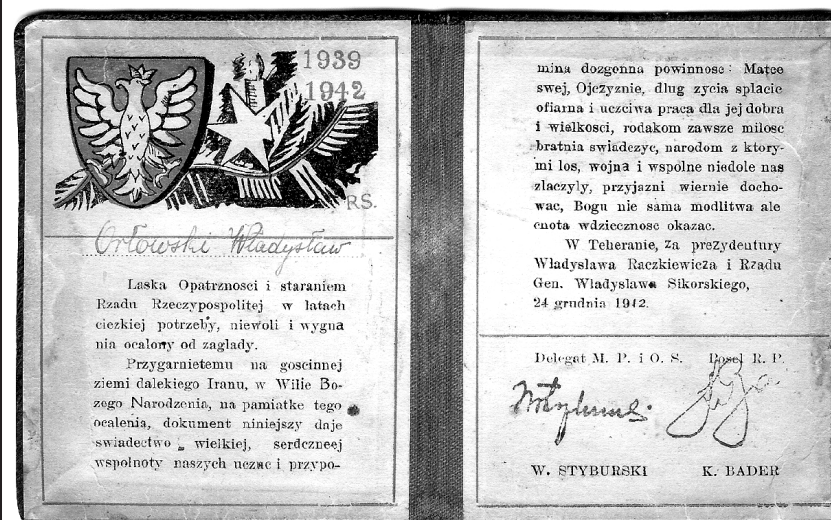 1939
1942
RS.
Orłowski Władysław
Laska Opatrznosci i staraniem
Rzadu Rzeczypospolitej w latach
ciezkiej potrzeby, niewoli i wygna
nia ocalony od zaglady.
Przygarnietemu na goscinnej
ziemi dalekiego Iranu, w Wilie Bo-
zego Narodzenia, na pamiatke tego
ocalenia, dokument niniejszy daje
swiadectwo wielkiej, serdczneej
wspolnoty naszych uczuc i przypo-
mina dozgonna powinnosc: Matce
swej, Ojczyznie, dlug zycia splacic
ofiarna i uczciwa praca dla jej dobra
i wielkosci, rodakom zawsze milosc
bratnia swiadczyc, narodom z ktory-
mi los, wojna i wspolne niedole nas
zlaczyly, przyjazni wiernie docho-
wac, Bogu nie sama modlitwa ale
cnota wdziecznosc okazac.
W Teheranie, za prezydentury
Wladyslawa Raczkiewicza i Rzadu
Gen. Wladyslawa Sikorskiego,
24 grudnia 1942.
Delegat M. P. i O. S. Posel R. P.
W. STYBURSKI K. BADER